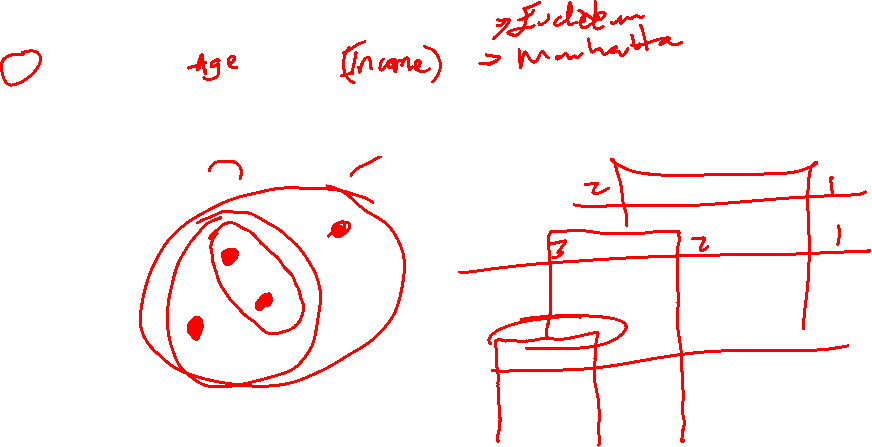 Age (Income) → Euclidean
→ Manhatta
2 1
3 2 1